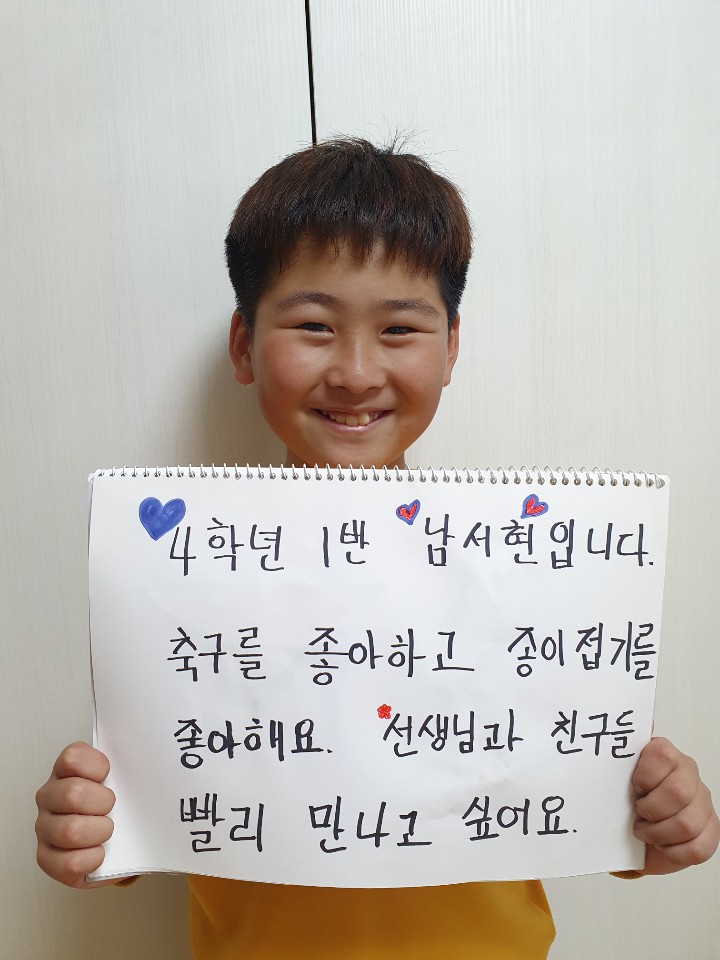 4학년 1반 남서현입니다.
축구를 좋아하고 종이접기를
좋아해요. 선생님과 친구들
빨리 만나고 싶어요.